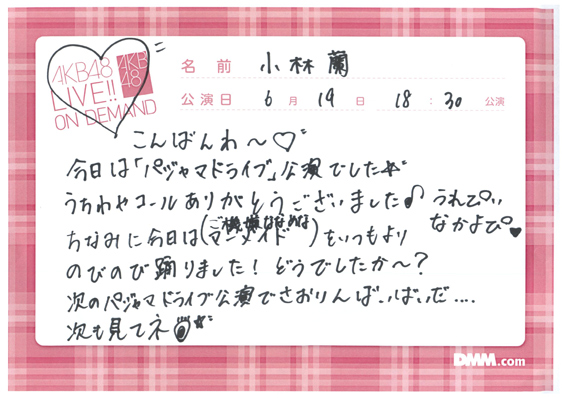 AKB48
LIVE!!
ON DEMAND
AKB
48
名前 小林蘭
公演日 6月19日 18:30公演
こんばんわ〜♡
今日は「パジャマドライブ」公演でした☆
うちわやコールありがとうございました♪ うれぴい
なかよぴ♥
ご機嫌ななめな
ちなみに今日は(マーメイド)をいつもより
のびのび踊りました！どうでしたか〜？
次のパジャマドライブ公演でさおりんばーいばいだ....
次も見てネ
DMM.com